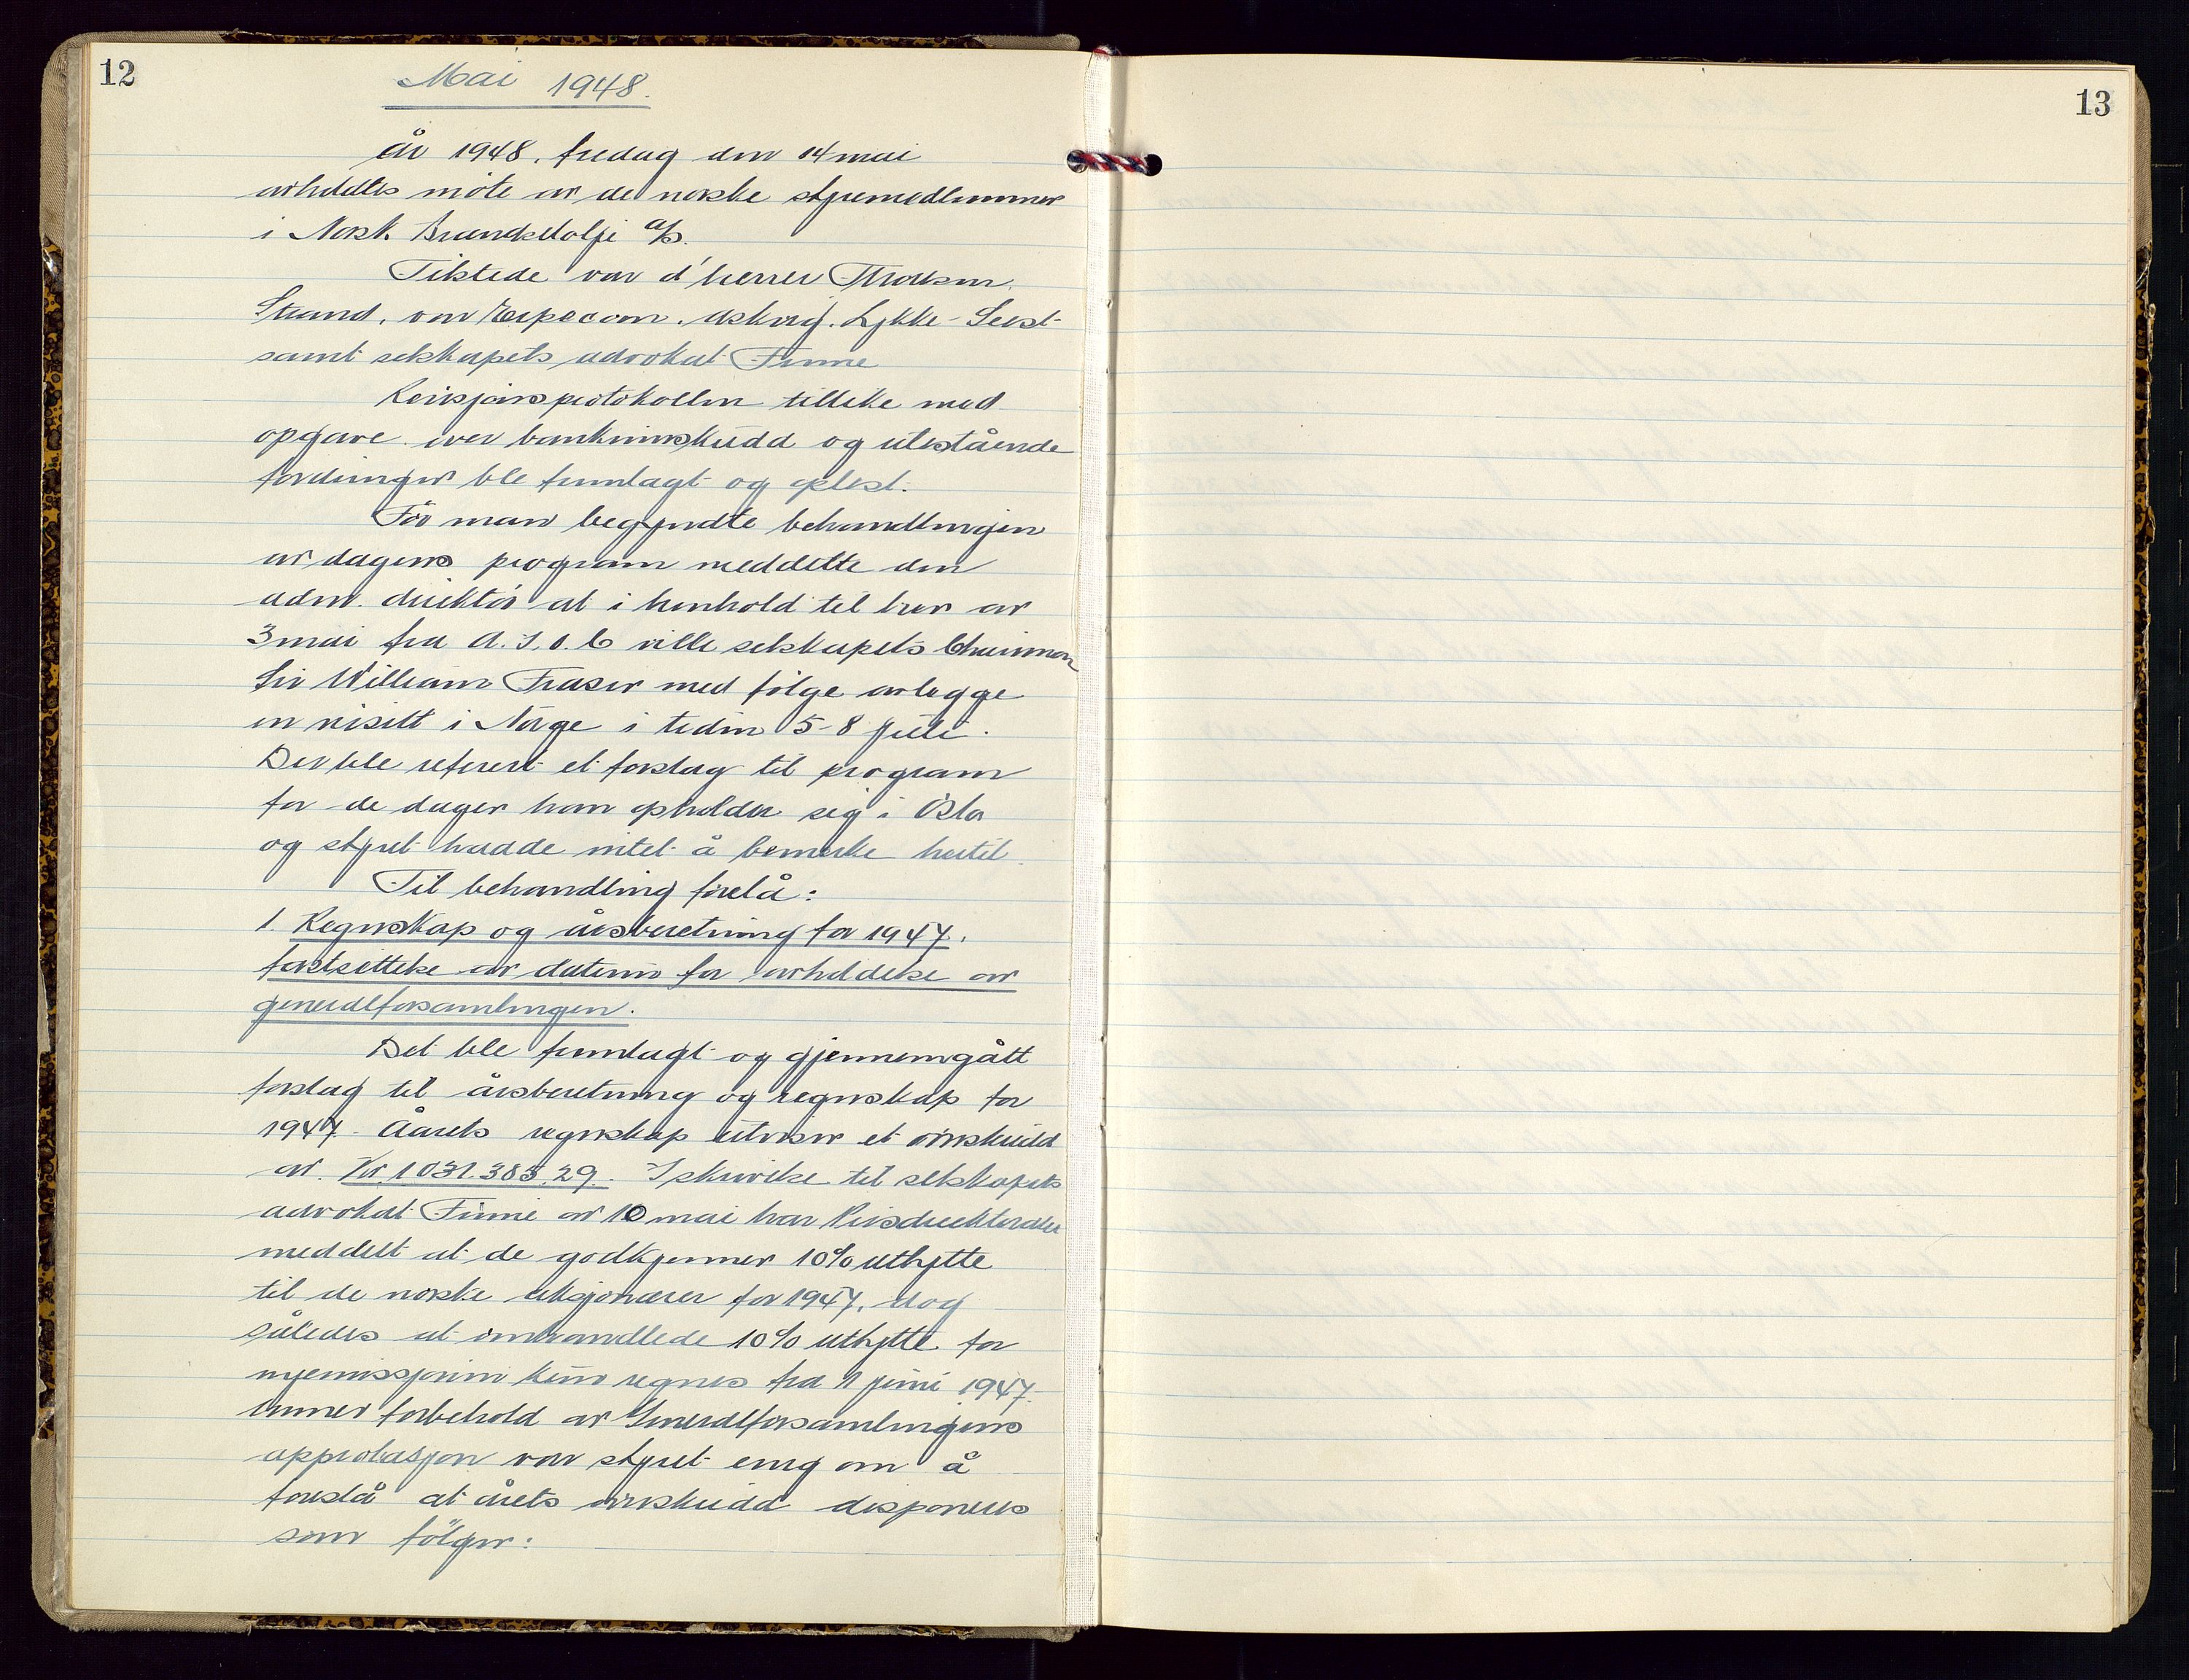 12
Mai 1948.
År 1948, fredag den 14 mai
avholdtes møte av de norske styremedlemmer
i Norsk Brændselolje A/S.
Tilstede var d'herrer Throlsen,
Strand, von Erpecom, Askvig, Lykke-Seest
samt selskapets advokat Finne
Revisjonsprotokollen tillike med
opgave over bankinnskudd og utestående
fordringer ble fremlagt og oplest.
Før man begyndte behandlingen
av dagens program meddelte den
adm. direktør at i henhold til brev av
3 mai fra A.I.O.C ville selskapets Chairman
Sir William Fraser med følge avlegge
en visitt i Norge i tiden 5-8 juli.
Der ble referert et forslag til program
for de dager han opholder sig i Oslo
og styret hadde intet å bemerke hertil.
Til behandling forelå:
1. Regnskap og årsberetning for 1947,
fastsettelse av datum for avholdelse av
generalforsamlingen.
Det ble fremlagt og gjennemgått
forslag til årsberetning og regnskap for
1947. Årets regnskap utviser et overskudd
av Kr. 1.031.385,29. I skrivelse til selskapets
advokat Finne av 10 mai har Prisdirektoratet
meddelt at de godkjenner 10% utbytte
til de norske aksjonærer for 1947, dog
således at omhandlede 10% utbytte for
nyemissjonen kun regnes fra 1 juni 1947.
Under forbehold av Generalforsamlingens
approbasjon var styret enig om å
foreslå at årets overskudd disponeres
som følger:
13